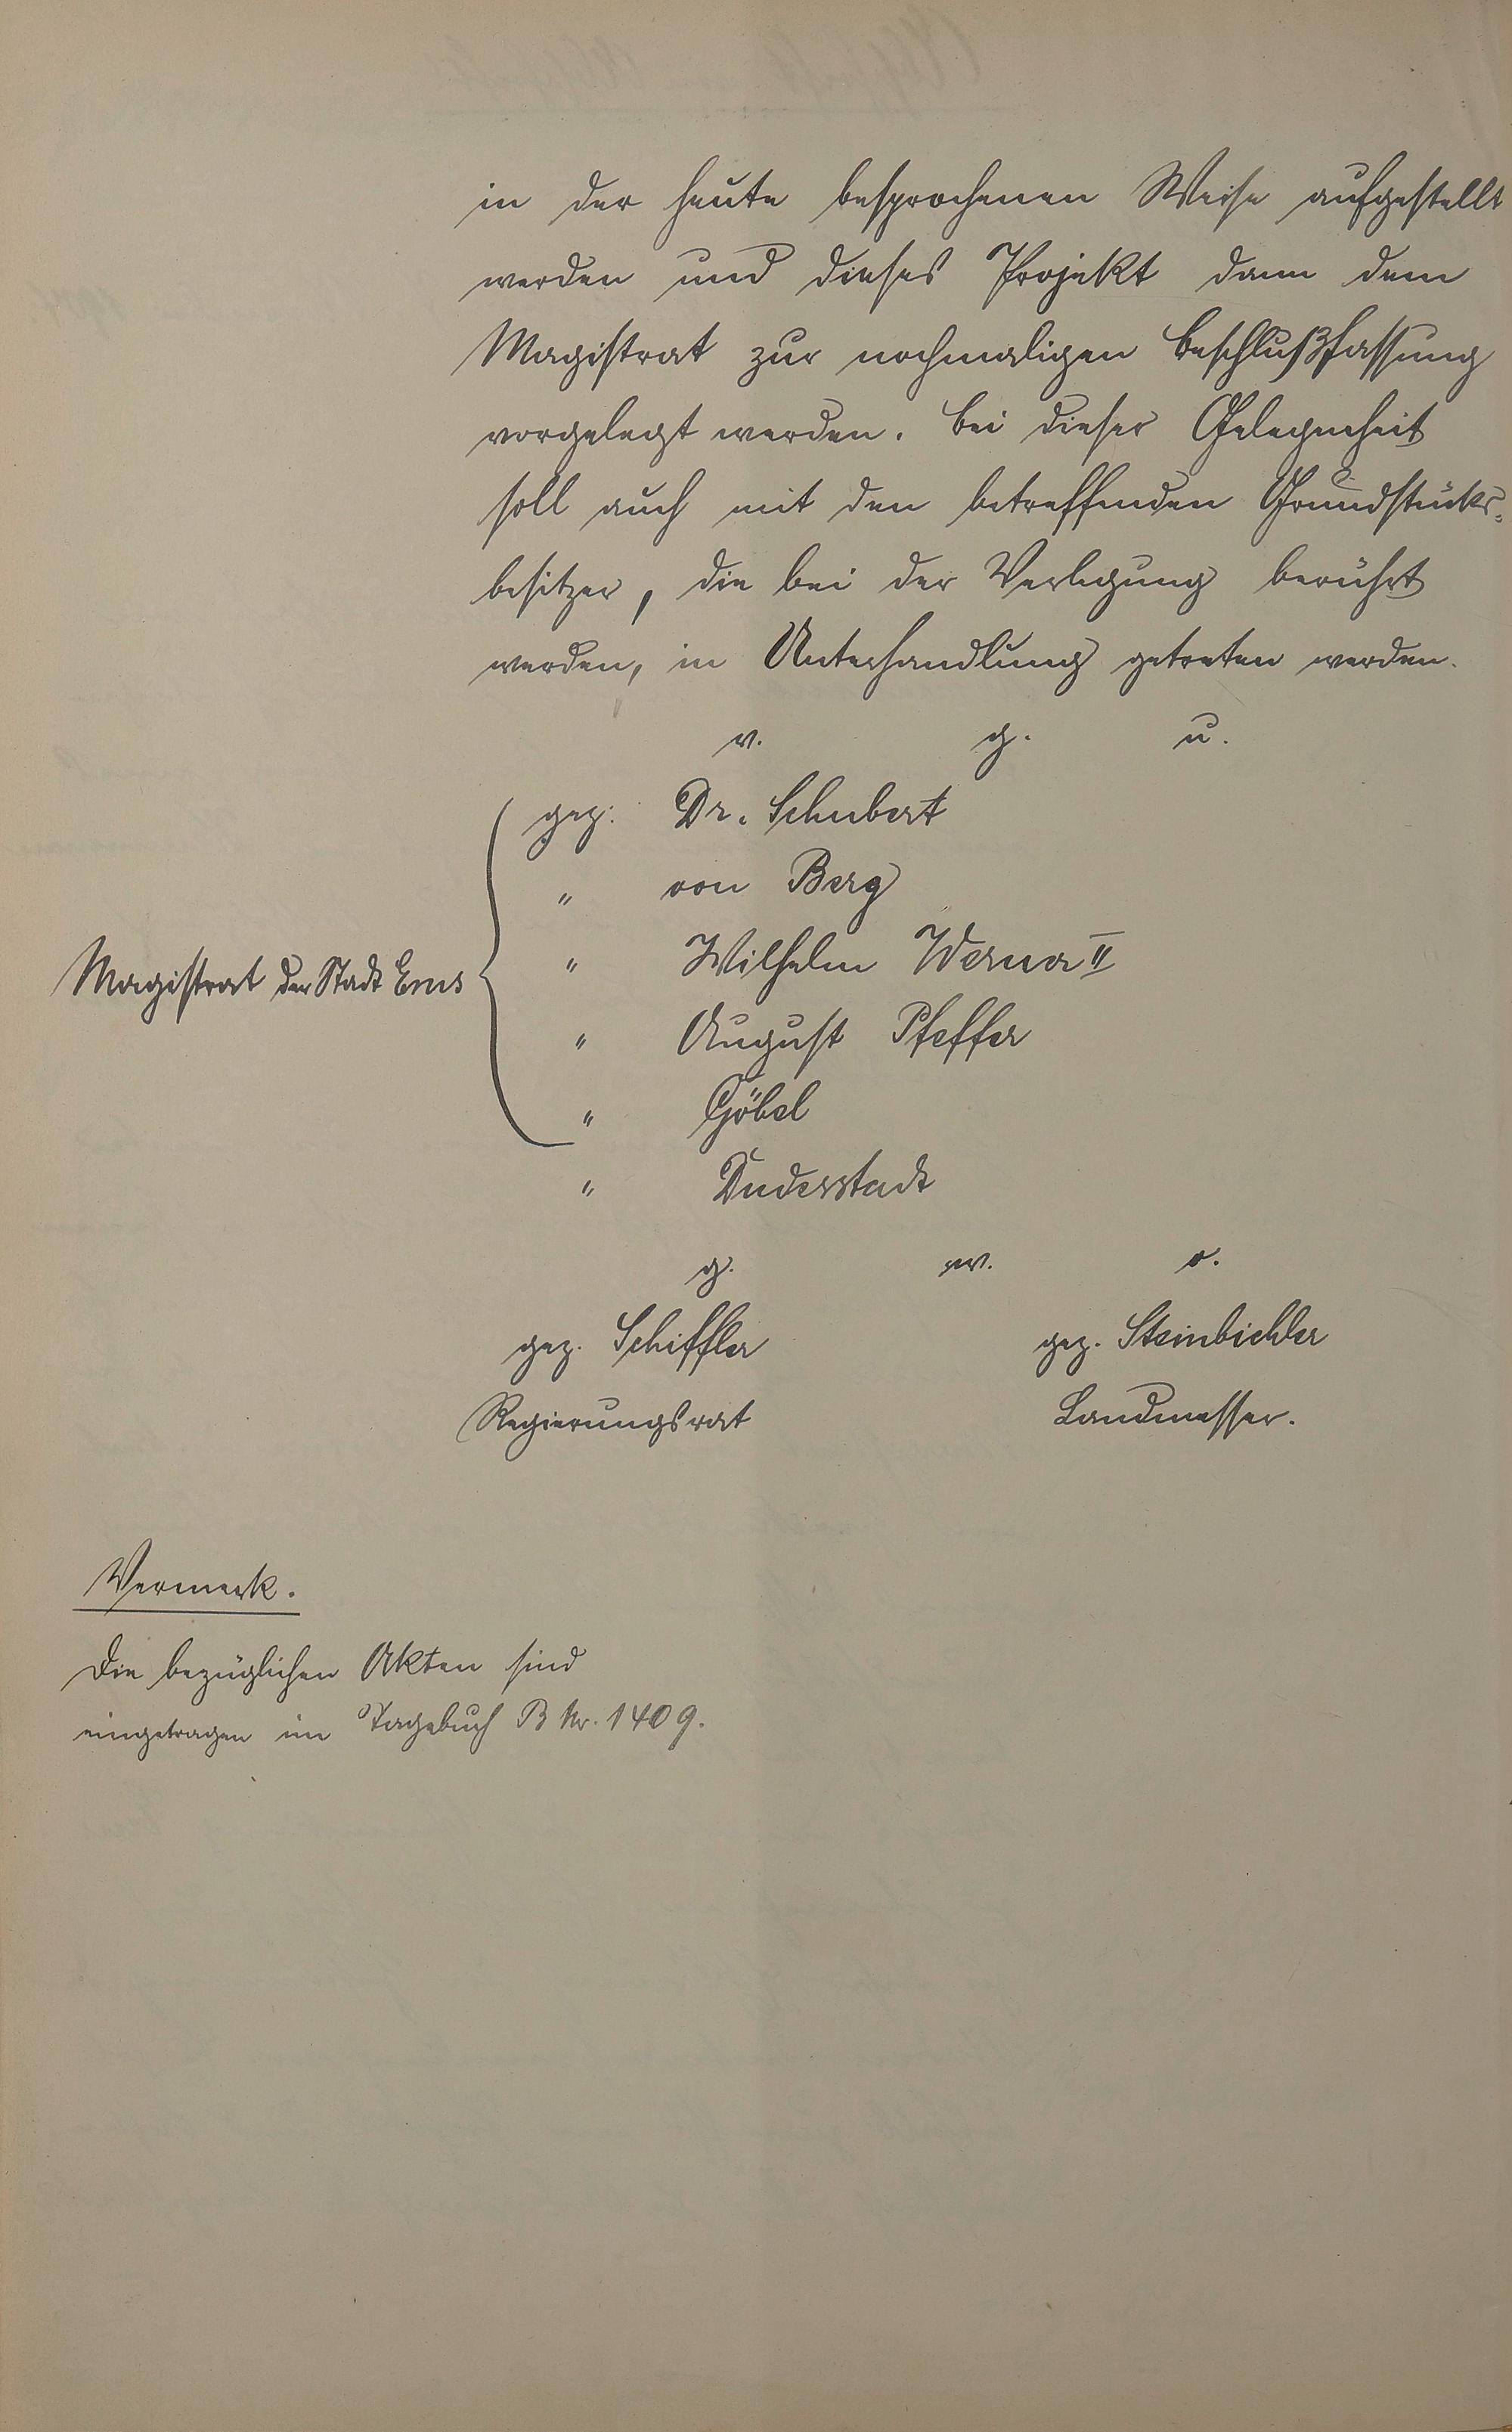 in der heute besprochenen Weise aufgestellt
werden und dieses Projekt dann dem
Magistrat zur nochmaligen Beschlußfassung
vorgelegt werden. Bei dieser Gelegenheit
soll auch mit den betreffenden Grundstücks-
besitzer, die bei der Verlegung berührt
werden, in Unterhandlung getreten werden.
v. g. u.
gez. Dr. Schubert
" von Berg
" Wilhelm Werner II
Magistrat der Stadt Ems
" August Pfeffer
" Göbel
" Duderstadt
g. w. o.
gez. Schiffler gez. Steinbichler
Regierungsrat Landmesser.
Vermerk.
Die bezüglichen Akten sind
eingetragen im Tagebuch B Nr. 1409.